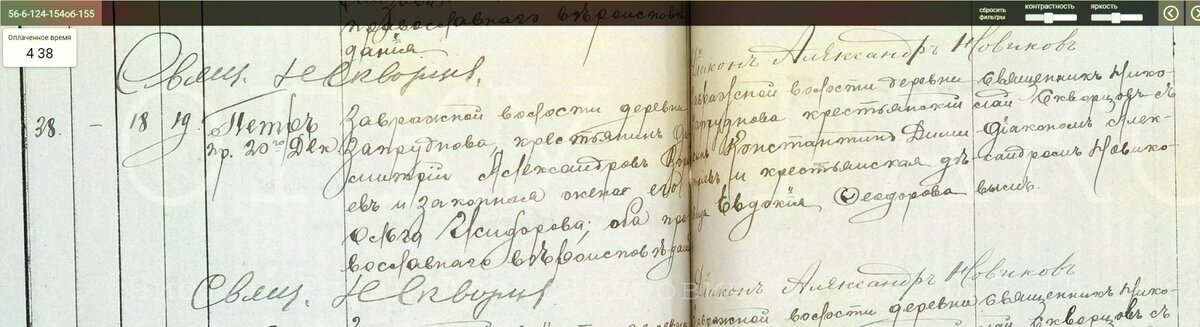 56-6-124-154об-155
Оплаченное время
4 38
сбросить
фильтры
контрастность
яркость
православнаго вѣроисповѣ
данія
Свящ. Н Скворцов.
38.
—
18
19
Петръ
пр. 20го Дек.
Завражной волости деревни
Запруднова, крестьянинъ Ди
митрій Александровъ
евъ и законная жена его
Ольга Исидорова; оба пра
вославнаго вѣроисповѣдан
Свящ. Н Скворцов
Диаконъ Александръ Новиковъ
Завражной волости деревни
Запруднова крестьянскій
сынъ Константинъ Дими
тріевъ и крестьянская дѣ
вица Евдокія Ѳеодорова
Священникъ Нико
лай Скворцовъ съ
діакономъ Алек-
сандромъ Новико-
вымъ.
Диаконъ Александръ Новиковъ
Завражной волости деревни
Священникъ Нико-
лай Скворцовъ съ